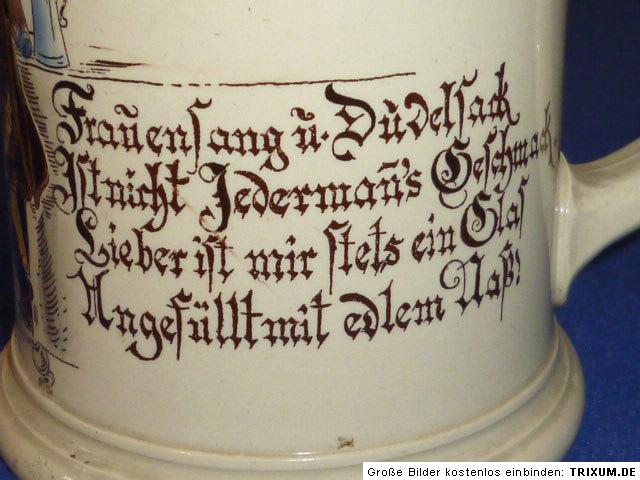 Frauensang u. Dudelsack
Ist nicht Jedermañ's Geschmack.
Lieber ist mir stets ein Glas
Angefüllt mit edlem Naß!
Große Bilder kostenlos einbinden: TRIXUM.DE